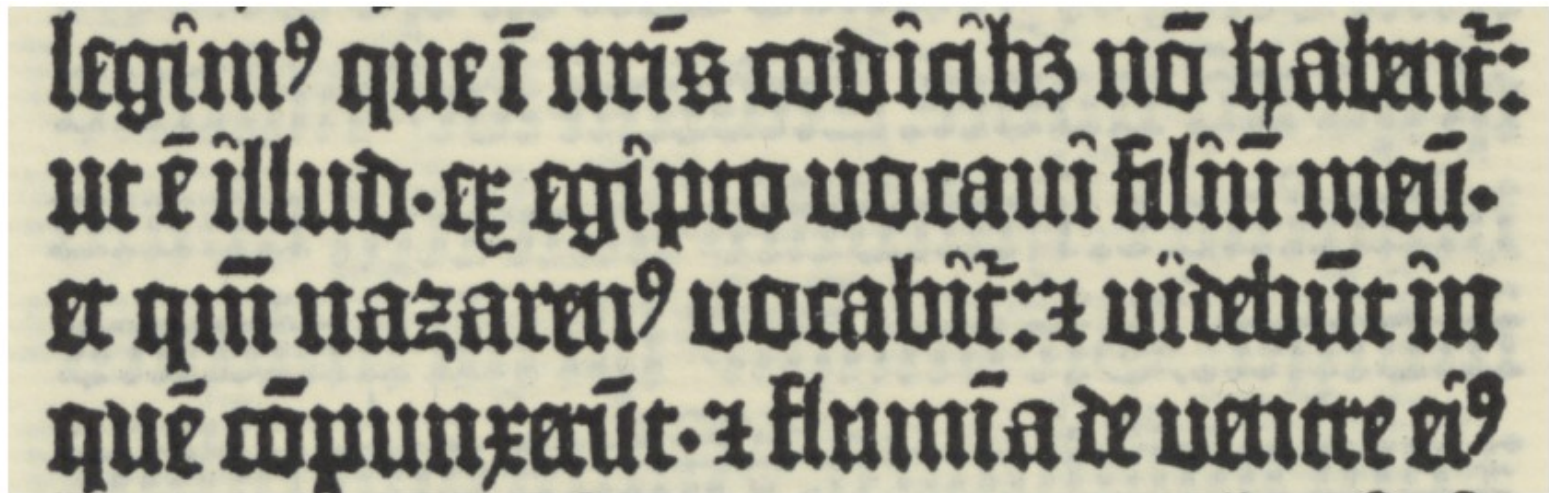 legimꝰ que ī nr̄is codicibꝫ nō habent᷑:
ut ē illud·ex egipto uocaui filiū meū·
et qm̄ nazarenꝰ uocabit᷑:⁊ uidebūt in
quē cōpunxerūt·⁊ flumīa de uentre eiꝰ